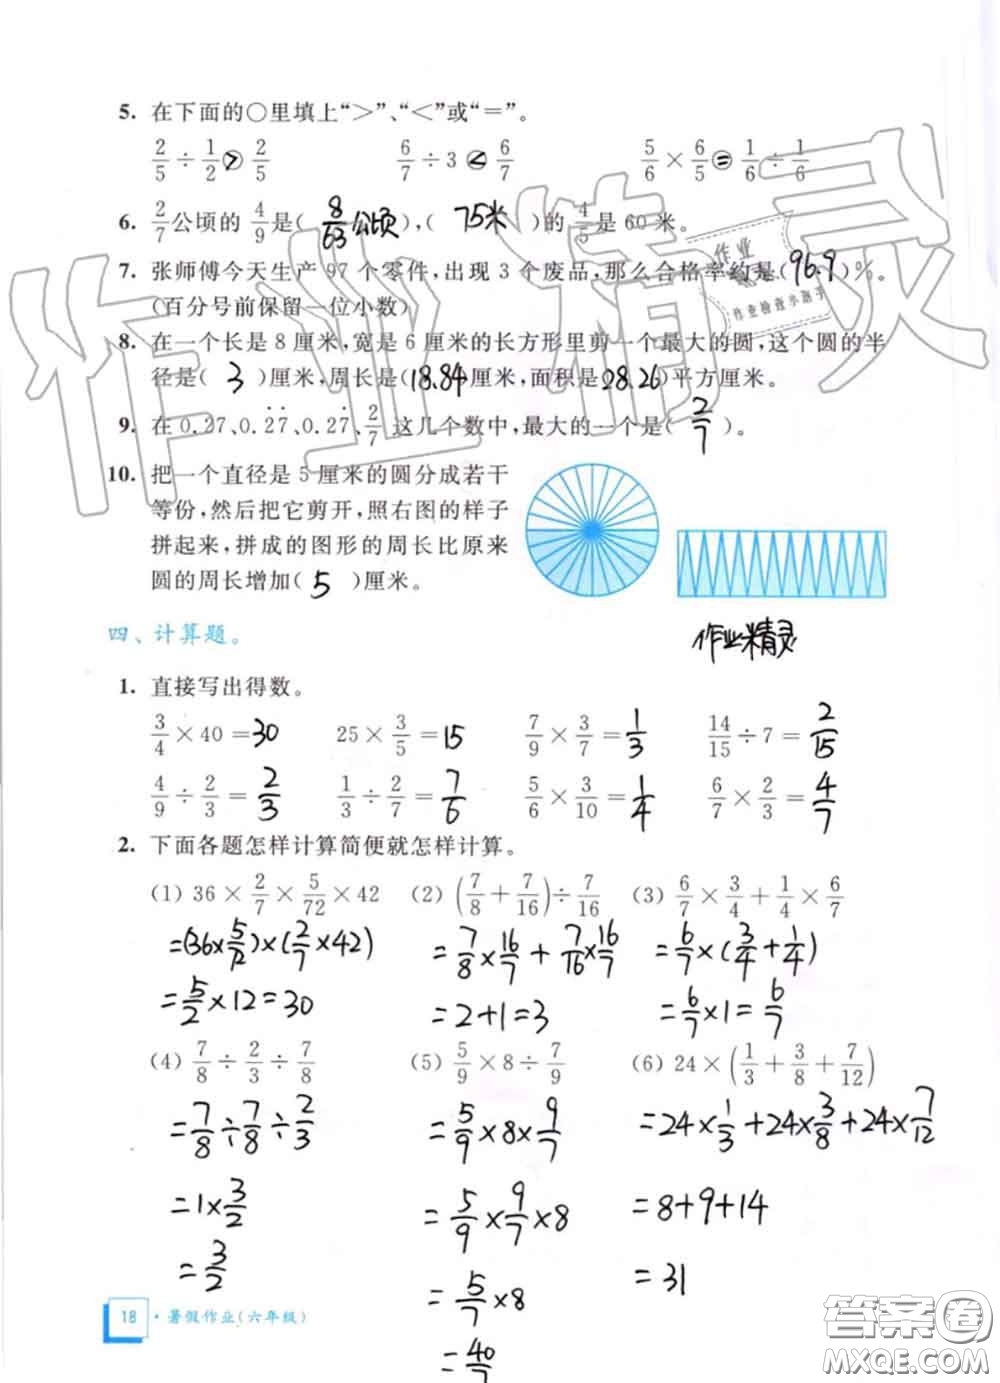 5. 在下面的○里填上“>”、“<”或“=”。
2/5 ÷ 1/2 > 2/5    6/7 ÷ 3 < 6/7    5/6 × 6/5 = 1/6 ÷ 1/6
6. 2/7公顷的 4/9是( 8/63公顷 ),( 75米 )的 4/5是 60 米。
7. 张师傅今天生产 97 个零件,出现 3 个废品,那么合格率约是( 96.9 )%。
(百分号前保留一位小数)
8. 在一个长是 8 厘米,宽是 6 厘米的长方形里剪一个最大的圆,这个圆的半
径是( 3 )厘米,周长是(18.84)厘米,面积是(28.26)平方厘米。
9. 在 0.27、0.2̇7̇、0.27̇、2/7 这几个数中,最大的一个是( 2/7 )。
10. 把一个直径是 5 厘米的圆分成若干
等份,然后把它剪开,照右图的样子
拼起来,拼成的图形的周长比原来
圆的周长增加( 5 )厘米。
作业精灵
四、计算题。
1. 直接写出得数。
3/4 × 40 = 30    25 × 3/5 = 15    7/9 × 3/7 = 1/3    14/15 ÷ 7 = 2/15
4/9 ÷ 2/3 = 2/3    1/3 ÷ 2/7 = 7/6    5/6 × 3/10 = 1/4    6/7 × 2/3 = 4/7
2. 下面各题怎样计算简便就怎样计算。
(1) 36 × 2/7 × 5/72 × 42    (2) (7/8 + 7/16) ÷ 7/16    (3) 6/7 × 3/4 + 1/4 × 6/7
=(36×5/72)×(2/7×42)    =7/8×16/7+7/16×16/7    =6/7×(3/4+1/4)
=5/2×12=30    =2+1=3    =6/7×1=6/7
(4) 7/8 ÷ 2/3 ÷ 7/8    (5) 5/9 × 8 ÷ 7/9    (6) 24 × (1/3 + 3/8 + 7/12)
=7/8÷7/8÷2/3    =5/9×8×9/7    =24×1/3+24×3/8+24×7/12
=1×3/2    =5/9×9/7×8    =8+9+14
=3/2    =5/7×8    =31
=40/7
18 · 暑假作业(六年级)
作业精灵
作业
作业检查小助手
答案圈
MXQE.COM